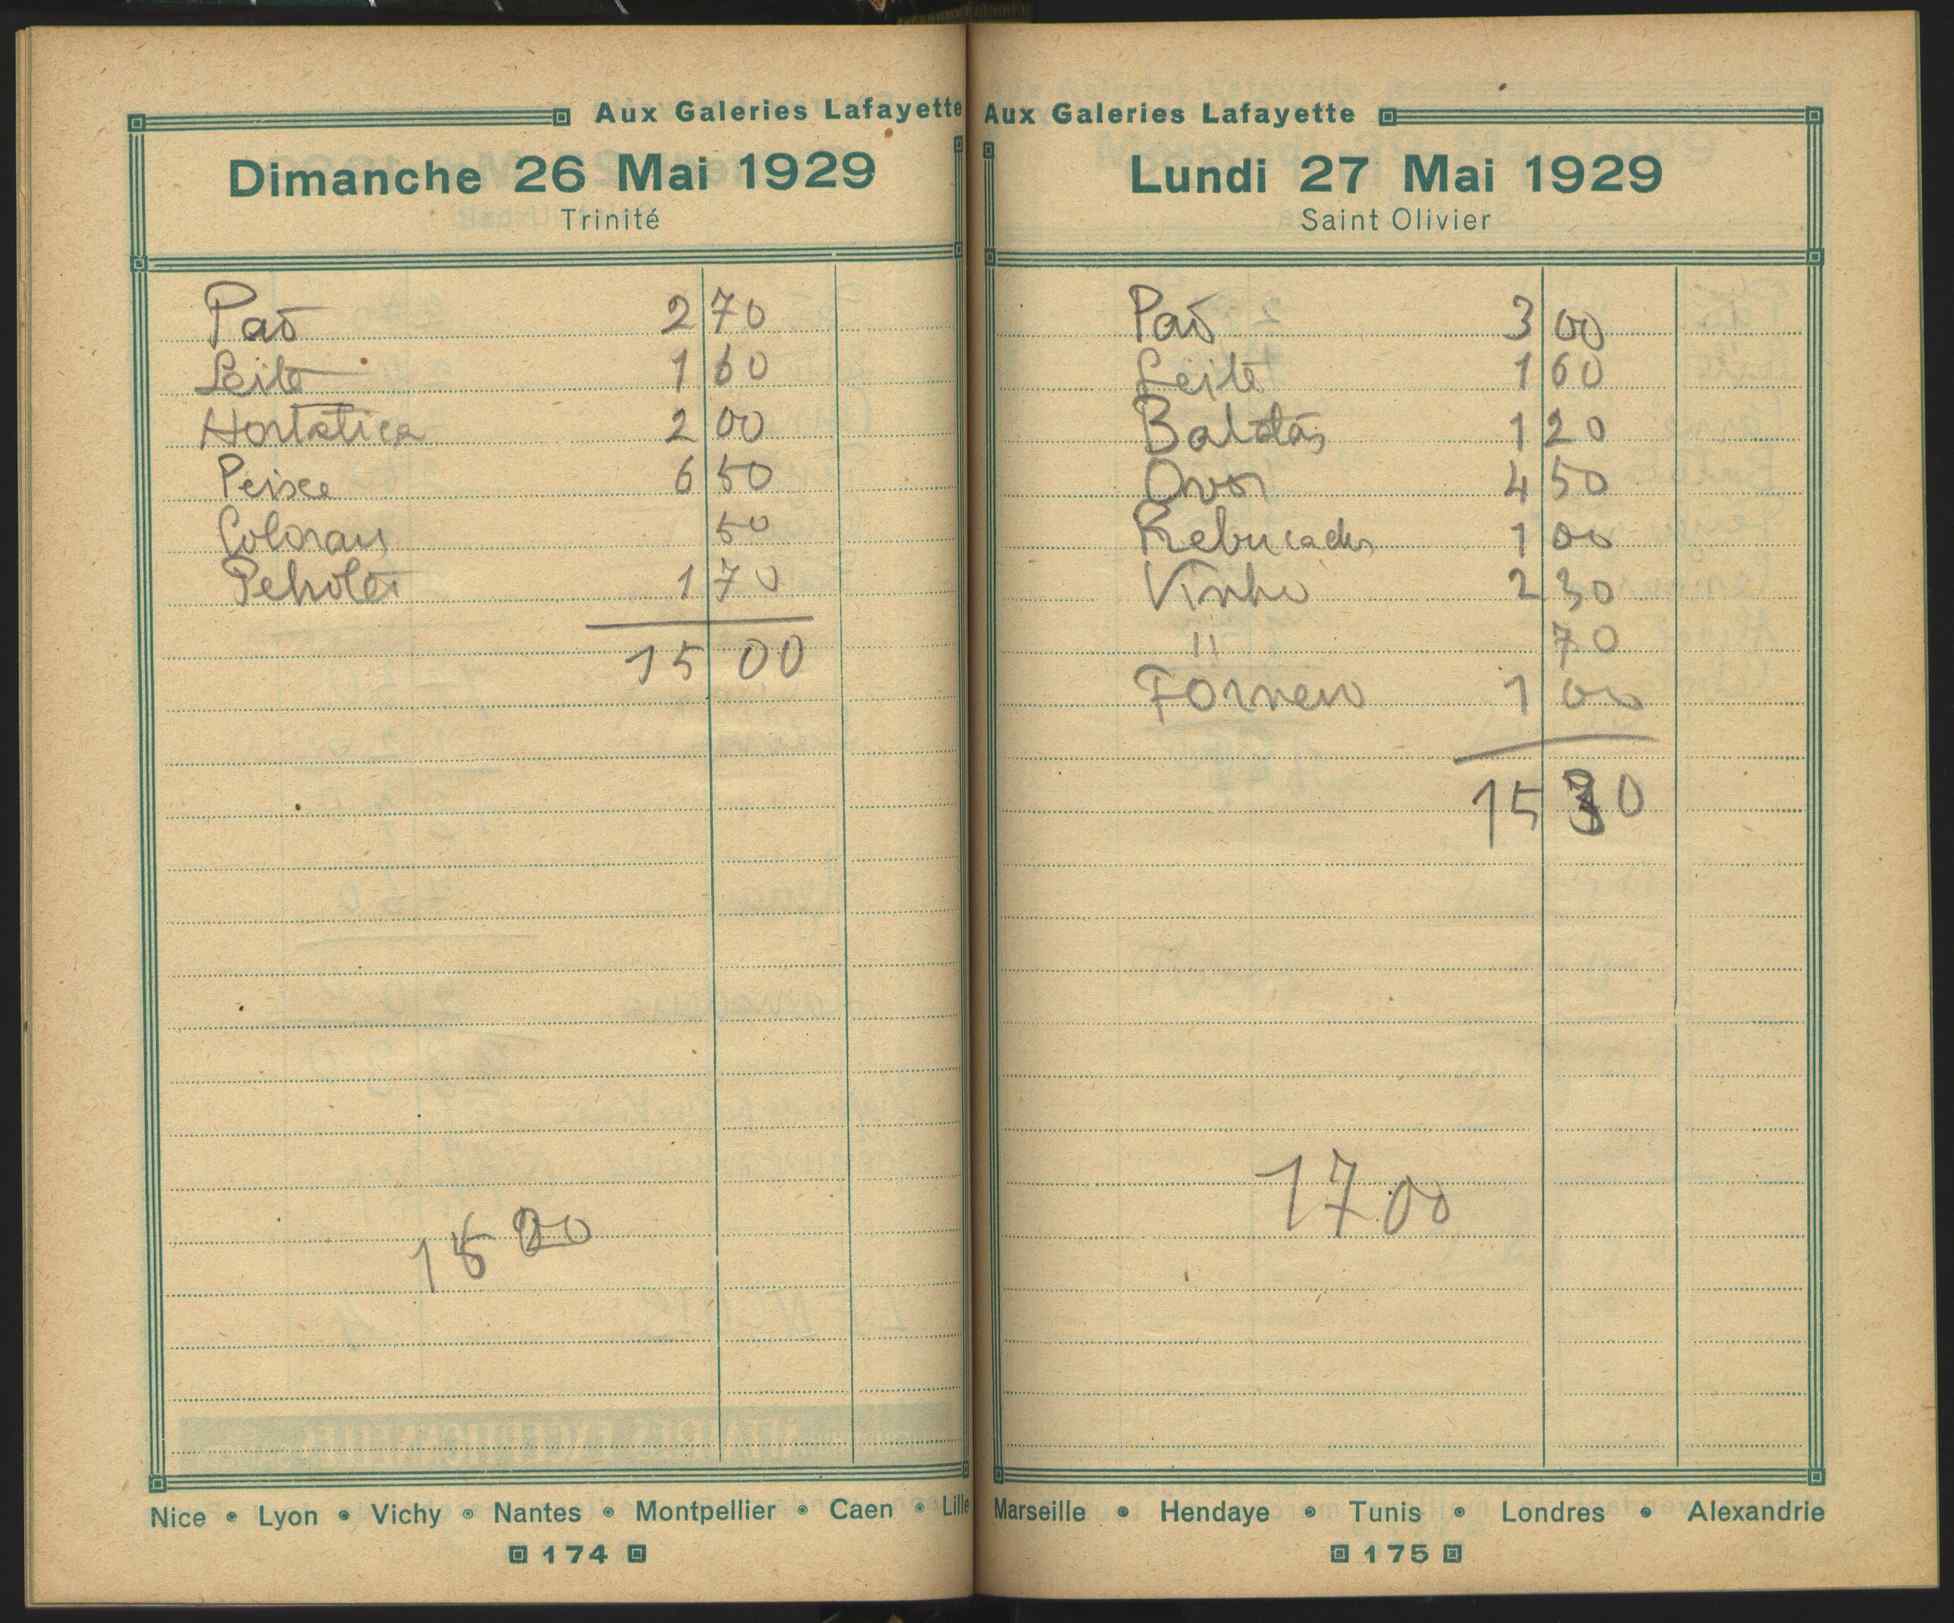 Aux Galeries Lafayette
Dimanche 26 Mai 1929
Trinité
Paō 2 70
Leite 1 60
Hortatiça 2 00
Peixe 6 50
Colorau 50
Petroleo 1 70
15 00
15 00
Nice • Lyon • Vichy • Nantes • Montpellier • Caen • Lille
174
Aux Galeries Lafayette
Lundi 27 Mai 1929
Saint Olivier
Paō 3 00
Leite 1 60
Batatas 1 20
Ovos 4 50
Rebucados 1 00
Vinho 2 30
" 70
Forneiro 1 00
15 30
17 00
Marseille • Hendaye • Tunis • Londres • Alexandrie
175